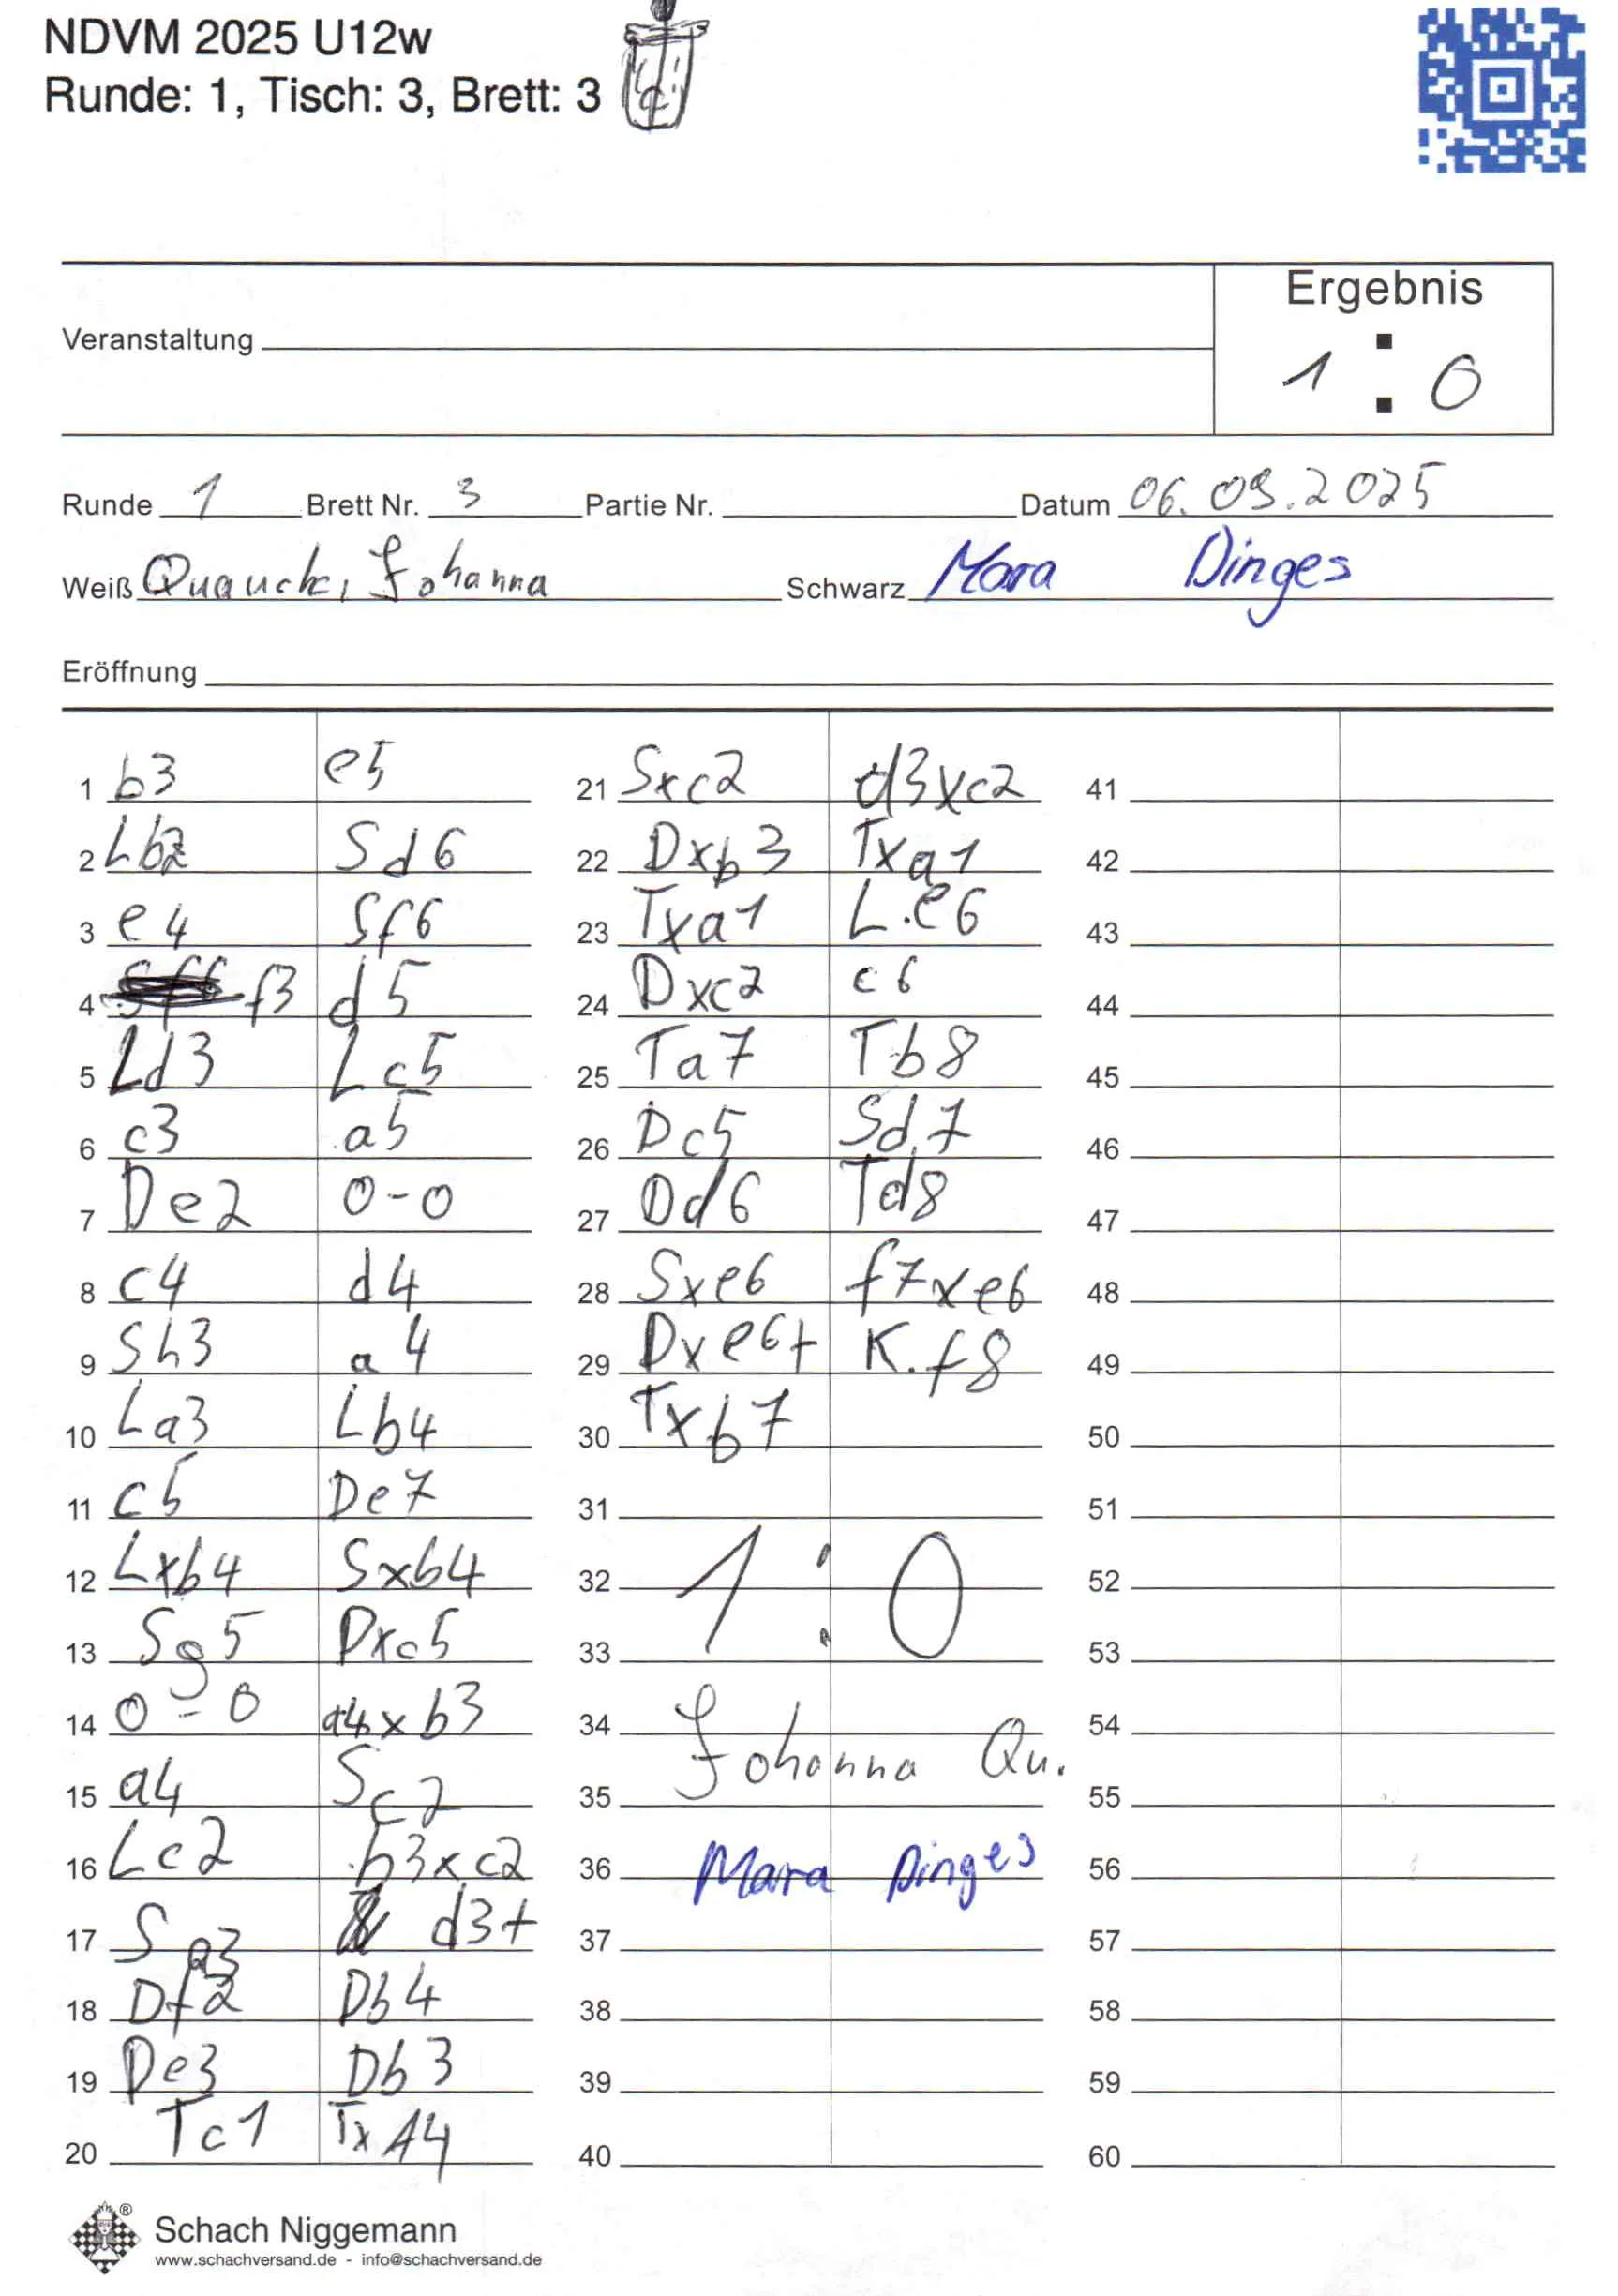 NDVM 2025 U12w
Runde: 1, Tisch: 3, Brett: 3
Ergebnis
Veranstaltung
1 : 0
Runde 1 Brett Nr. 3 Partie Nr. Datum 06.09.2025
Weiß Quauck, Johanna Schwarz Mara Dinges
Eröffnung
1 b3 e5
2 Lb2 Sd6
3 e4 Sf6
4 f3 d5
5 Ld3 Lc5
6 c3 a5
7 De2 0-0
8 c4 d4
9 Sh3 a4
10 La3 Lb4
11 c5 De7
12 Lxb4 Sxb4
13 Sg5 Dxc5
14 0-0 a4xb3
15 a4 Sc2
16 Lc2 b3xc2
17 Sa3 d3+
18 Df2 Db4
19 De3 Db3
20 Tc1 TxA4
21 Sxc2 d3xc2
22 Dxb3 Txa1
23 Txa1 L.e6
24 Dxc2 c6
25 Ta7 Tb8
26 Dc5 Sd7
27 Dd6 Td8
28 Sxe6 f7xe6
29 Dxe6+ K.f8
30 Txb7
31
32 1 : 0
33
34 Johanna Qu.
35
36 Mara Dinges
37
38
39
40
41
42
43
44
45
46
47
48
49
50
51
52
53
54
55
56
57
58
59
60
Schach Niggemann
www.schachversand.de - info@schachversand.de